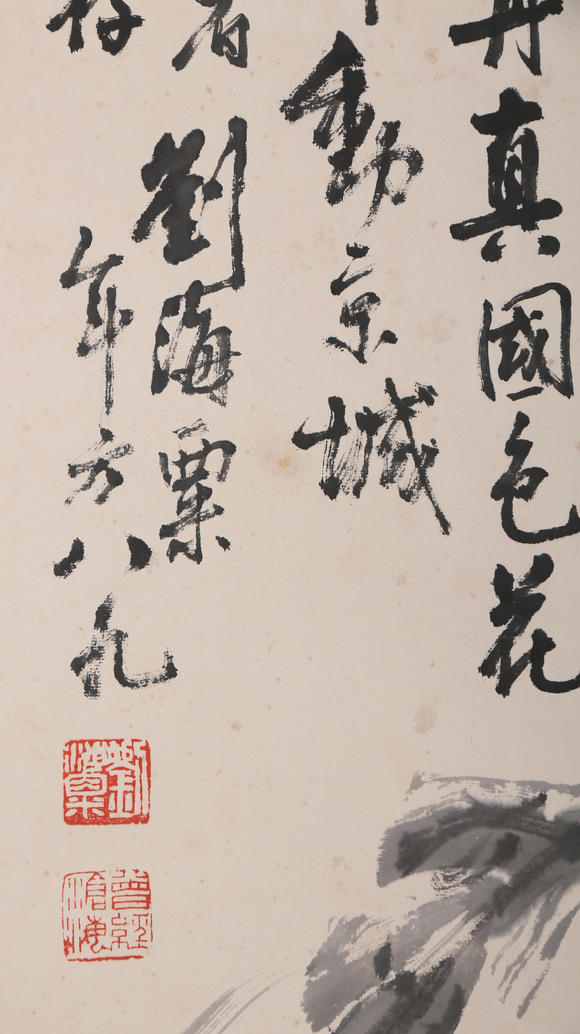 丹真國色花
動京城
劉海粟
存年方八九
劉海粟
曾經滄海